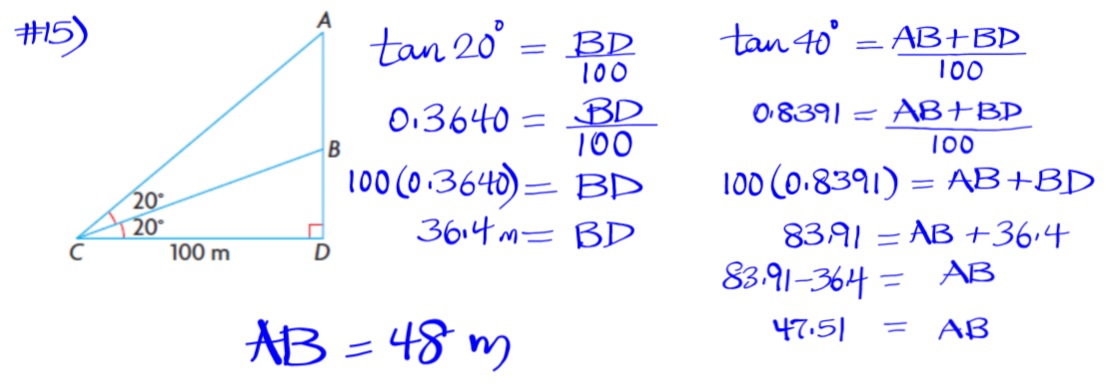 #15)
A
B
20°
20°
C
100 m
D
tan 20° = BD/100
0.3640 = BD/100
100(0.3640) = BD
36.4 m = BD
tan 40° = AB+BD/100
0.8391 = AB+BD/100
100(0.8391) = AB+BD
83.91 = AB + 36.4
83.91-36.4 = AB
47.51 = AB
AB = 48 m